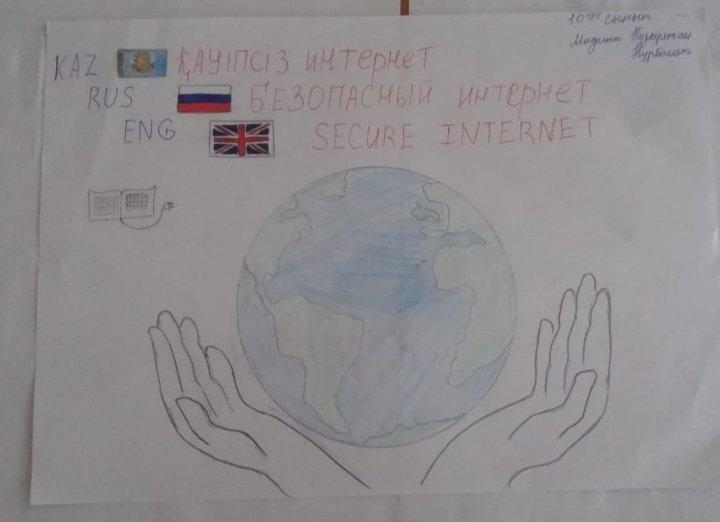 сынып
Мадина Нурсултан
Нурболат
KAZ ҚАУІПСІЗ ИНТЕРНЕТ
RUS БЕЗОПАСНЫЙ ИНТЕРНЕТ
ENG SECURE INTERNET